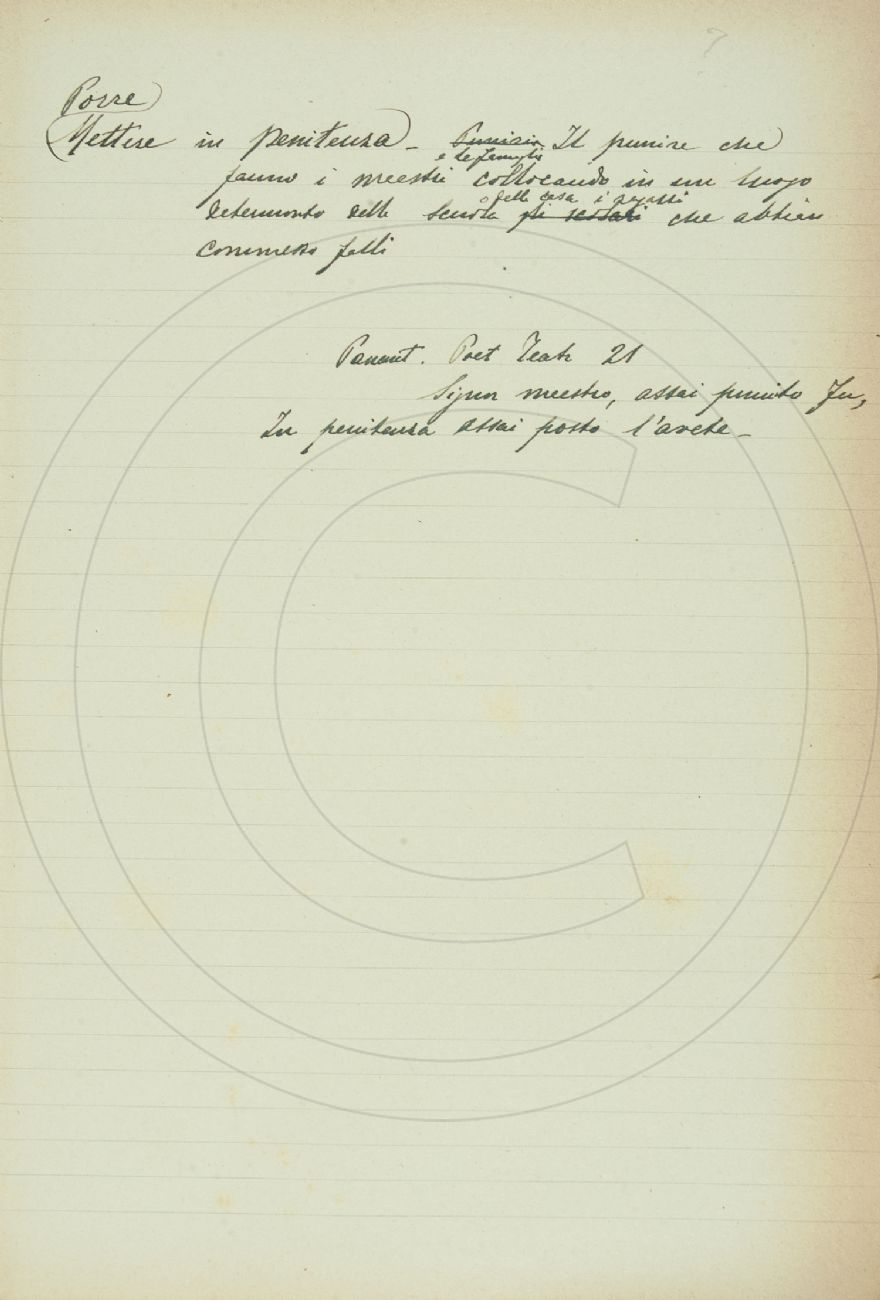 Porre
Mettere in penitenza) - Punizio Il punire che
e le famiglie
fanno i maestri collocando in un luogo
o della casa i ragazzi
determnto della scuola gli scolari che abbian
commesso falli
Panant. Poet Teatr 21
Signor maestro, assai punito fu,
In penitenza assai posto l'avete -